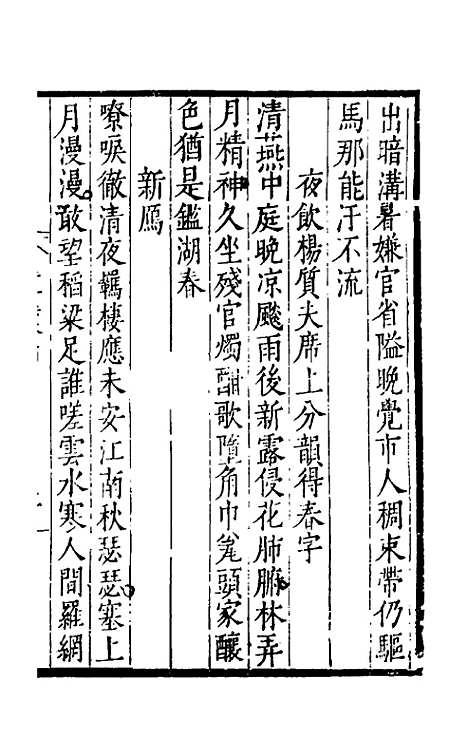 出暗溝暑嫌官省隘晚覺市人稠束帶仍驅
馬那能汙不流
夜飲楊質夫席上分韻得春字
清燕中庭晚凉颸雨後新露侵花肺腑林弄
月精神久坐殘官燭酣歌墮角巾甕頭家釀
色猶是鑑湖春
新鴈
嘹唳徹清夜羈棲應未安江南秋瑟瑟塞上
月漫漫敢望稻粱足誰嗟雲水寒人間羅網